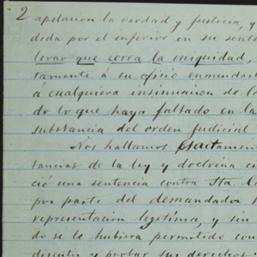 2 apelacion la verdad y justicia, y
dida por el inferior en su sente
lorar que corra la iniquidad,
tamente á su oficio enmendarl
a cualquiera insinuacion de lo
do lo que haya faltado en la
substancia del orden judicial
Nos hallamos exactamen
tancias de la ley y doctrina c
ció una sentencia contra Sta
por parte del demandador
representacion legitima, y sin
do se le hubiera permitido con
deseuts y probar sus derechos